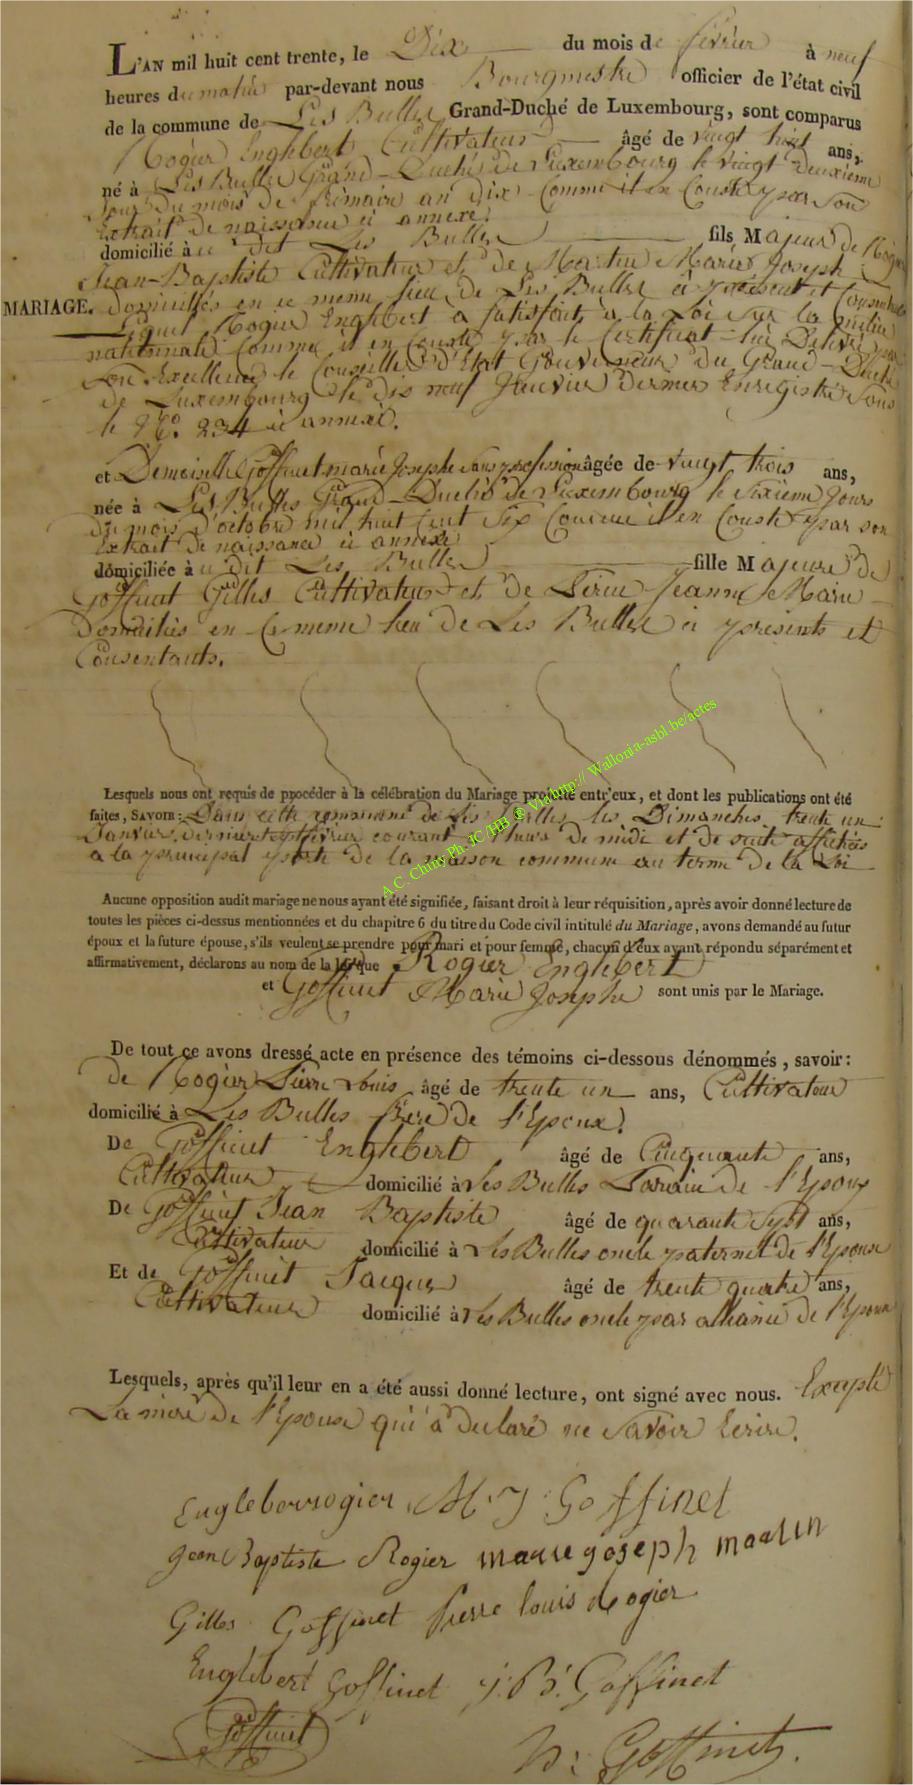 L'AN mil huit cent trente, le Dix du mois de février à neuf
heures du matin par-devant nous Bourgmestre officier de l'état civil
de la commune de Les Bulles Grand-Duché de Luxembourg, sont comparus
Rogier Englebert Cultivateur âgé de vingt huit ans,
né à Les Bulles Grand-Duché de Luxembourg le vingt deuxieme
Jour du mois de frimaire an dix Comme il en Conste par Son
Extrait de naissance ci annexé.
domicilié au dit Les Bulles fils Majeur de Rogier
Jean-Baptiste Cultivateur et de Martin Marie Joseph
MARIAGE.
domiciliés en ce meme lieu de Les Bulles ci présent et Consentants
Lequel Rogier Englebert a satisfait à la Loi sur la milice
nationale Comme il en Conste par le Certificat lui Délivré par
Son Excellence le Conseiller d'Etat Gouverneur du Grand-Duché
de Luxembourg le dix neuf Janvier dernier Enregistré Sous
le No. 234 ci annexé.
et Demoiselle Goffinet marie Josephe Sans profession âgée de vingt trois ans,
née à Les Bulles Grand-Duché de Luxembourg le Sixieme Jours
du mois d'octobre mil huit Cent Six Comme il en Conste par son
Extrait de naissance ci annexé
domiciliée au dit Les Bulles fille Majeure de
Goffinet Gilles Cultivateur et de Jeanne Marie
Domiciliés en Ce meme lieu de Les Bulles ci présents et
Consentants.
Lesquels nous ont requis de procéder à la célébration du Mariage projeté entr'eux, et dont les publications ont été
faites, SAVOIR: Dans cette commune de Les Bulles les Dimanches trente un
Janvier dernier et sept février courant heure de midi et de suite affichées
a la principal porte de la maison commune au terme de la Loi
A.C. Chiny Ph. JC HB ® Via http:// Wallonia-asbl.be/actes
Aucune opposition audit mariage ne nous ayant été signifiée, faisant droit à leur réquisition, après avoir donné lecture de
toutes les pièces ci-dessus mentionnées et du chapitre 6 du titre du Code civil intitulé du Mariage, avons demandé au futur
époux et la future épouse, s'ils veulent se prendre pour mari et pour femme, chacun d'eux ayant répondu séparément et
affirmativement, déclarons au nom de la loi que Rogier Englebert
et Goffinet Marie Josephe sont unis par le Mariage.
De tout ce avons dressé acte en présence des témoins ci-dessous dénommés, savoir:
de Rogier Pierre Louis âgé de trente un ans, Cultivateur
domicilié à Les Bulles frere de l'Epoux.
De Goffinet Englebert âgé de Cinquante ans,
Cultivateur domicilié à Les Bulles Parain de l'Epoux
De Goffinet Jean Baptiste âgé de quarante Sept ans,
Cultivateur domicilié à Les Bulles oncle paternel de l'Epouse
Et de Goffinet Jacques âgé de trente quatre ans,
Cultivateur domicilié à Les Bulles oncle par alliance de l'Epoux
Lesquels, après qu'il leur en a été aussi donné lecture, ont signé avec nous. Excepté
La mere de l'Epouse qui a declaré ne Savoir Ecrire.
Engleber rogier M. J Goffinet
Jean Baptiste Rogier marie joseph martin
Gilles Goffinet Pierre louis Rogier
Englebert Goffinet J. B. Goffinet
Goffinet
Goffinet.